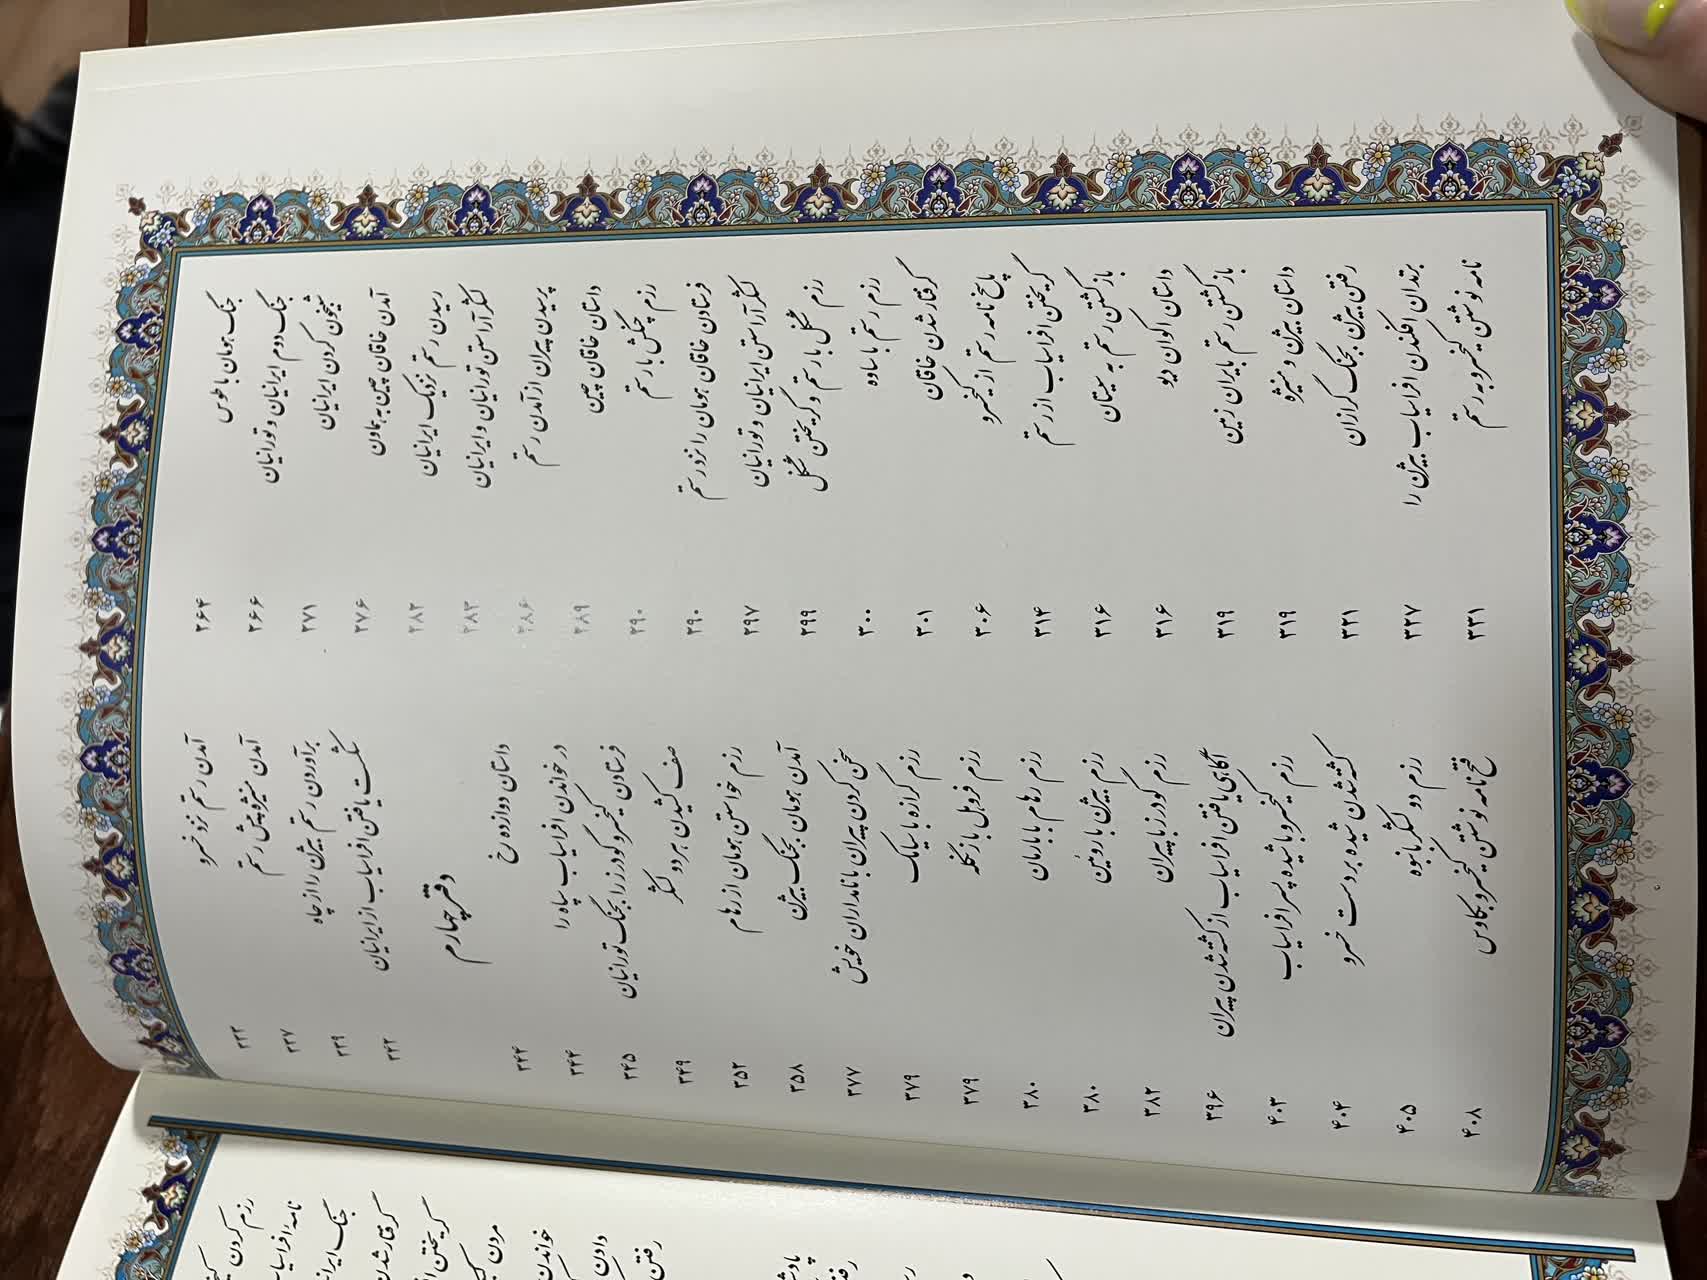 جنگ هومان با طوس ۲۶۴
جنگ دوم ایرانیان و تورانیان ۲۶۶
شبیخون کردن ایرانیان ۲۷۱
آمدن خاقان چین به هماون ۲۷۶
رسیدن رستم نزدیک ایرانیان ۲۸۲
لشکر آراستن تورانیان و ایرانیان ۲۸۳
پرسیدن پیران از آمدن رستم ۲۸۶
داستان خاقان چین ۲۸۹
رزم چنگش با رستم ۲۹۰
فرستادن خاقان هومان را نزد رستم ۲۹۰
لشکر آراستن ایرانیان و تورانیان ۲۹۷
رزم شنگل با رستم و گریختن شنگل ۲۹۹
رزم رستم با ساوه ۳۰۰
گرفتار شدن خاقان ۳۰۱
پاسخ نامه رستم از کیخسرو ۳۰۶
گریختن افراسیاب از رستم ۳۱۴
بازگشتن رستم به سیستان ۳۱۶
داستان اکوان دیو ۳۱۶
بازگشتن رستم بایران زمین ۳۱۹
داستان بیژن و منیژه ۳۱۹
رفتن بیژن بجنگ گرازان ۳۲۱
بزندان افکندن افراسیاب بیژن را ۳۲۷
نامه نوشتن کیخسرو به رستم ۳۳۱
آمدن رستم نزد خسرو ۳۳۳
آمدن منیژه پیش رستم ۳۳۷
برآوردن رستم بیژن را از چاه ۳۳۹
شکست یافتن افراسیاب از ایرانیان ۳۴۲
دفتر چهارم
داستان دوازده رخ ۳۴۴
در خواندن افراسیاب سپاه را ۳۴۴
فرستادن کیخسرو گودرز را بجنگ تورانیان ۳۴۵
صف کشیدن هر دو لشکر ۳۴۹
رزم خواستن هومان از رهام ۳۵۲
آمدن هومان بجنگ بیژن ۳۵۸
سخن کردن پیران با نامداران خویش ۳۷۷
رزم گرازه با سیامک ۳۷۹
رزم فروهل با زنگله ۳۷۹
رزم رهام با بارمان ۳۸۰
رزم بیژن با روئین ۳۸۰
رزم گودرز با پیران ۳۸۲
آگاهی یافتن افراسیاب از کشته شدن پیران ۳۹۶
رزم کیخسرو با شیده پسر افراسیاب ۴۰۳
کشته شدن شیده بر دست خسرو ۴۰۴
رزم دو لشکر بانبوه ۴۰۵
فتح نامه نوشتن کیخسرو بکاوس ۴۰۸
رزم کردن
نامه افراسیا
جنگ ایرانی
گرفتار شدن
گریختن
مردن
خواندن
دادن
رفتن